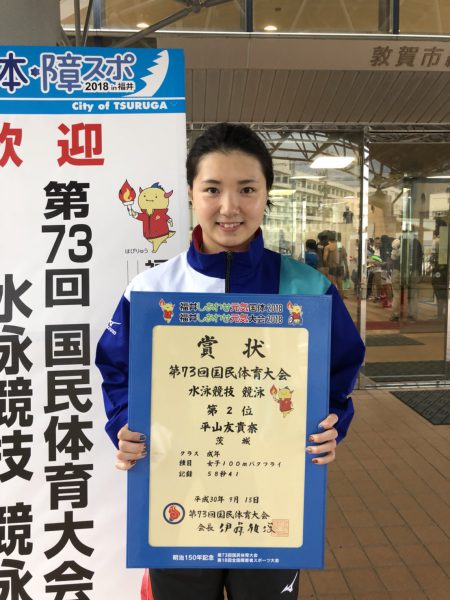 本・障スポ
2018 in 福井
City of TSURUGA
歓迎
第73回 国民体育大会
水泳競技 競泳
はぴりゅう
敦賀市
福井しあわせ元気国体2018
福井しあわせ元気大会2018
賞状
第73回国民体育大会
水泳競技 競泳
第2位
平山友貴奈
茨城
クラス 成年
種目 女子100mバタフライ
記録 58秒41
平成30年9月15日
第73回国民体育大会
会長 伊藤雅俊
明治150年記念
第73回国民体育大会
第18回全国障害者スポーツ大会